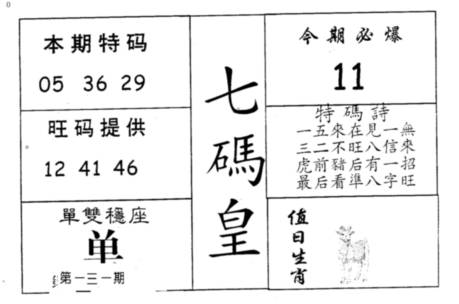 0
本期特码
05 36 29
旺码提供
12 41 46
單雙穩座
单
第一三一期
七碼皇
今期必爆
11
特碼詩
一五來在見一無
三二不旺八信來
虎前豬后有一招
最后看準八字旺
值日生肖